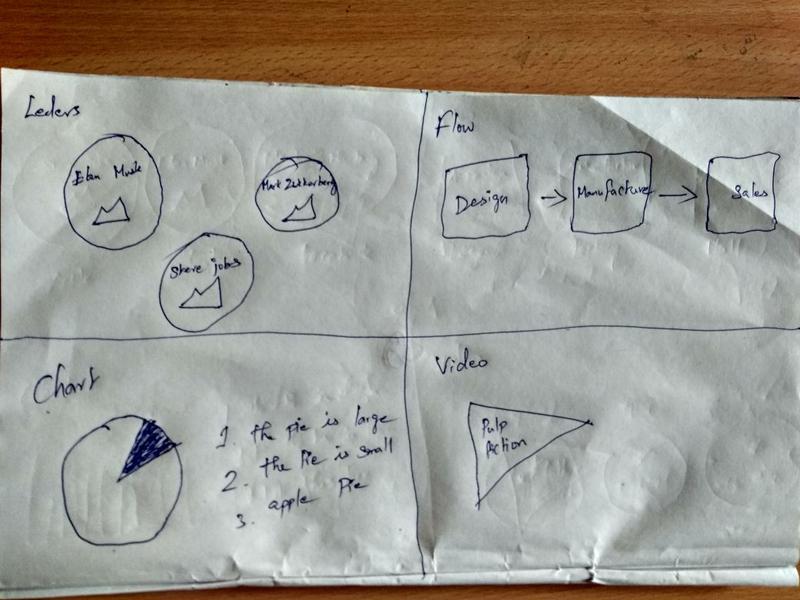 Leders
Elan Musk
Mark Zukkerberg
Steve jobs
Flow
Design
Manufacture
Sales
Chart
1. the pie is large
2. the Pie is small
3. apple Pie
Video
Pulp
fiction